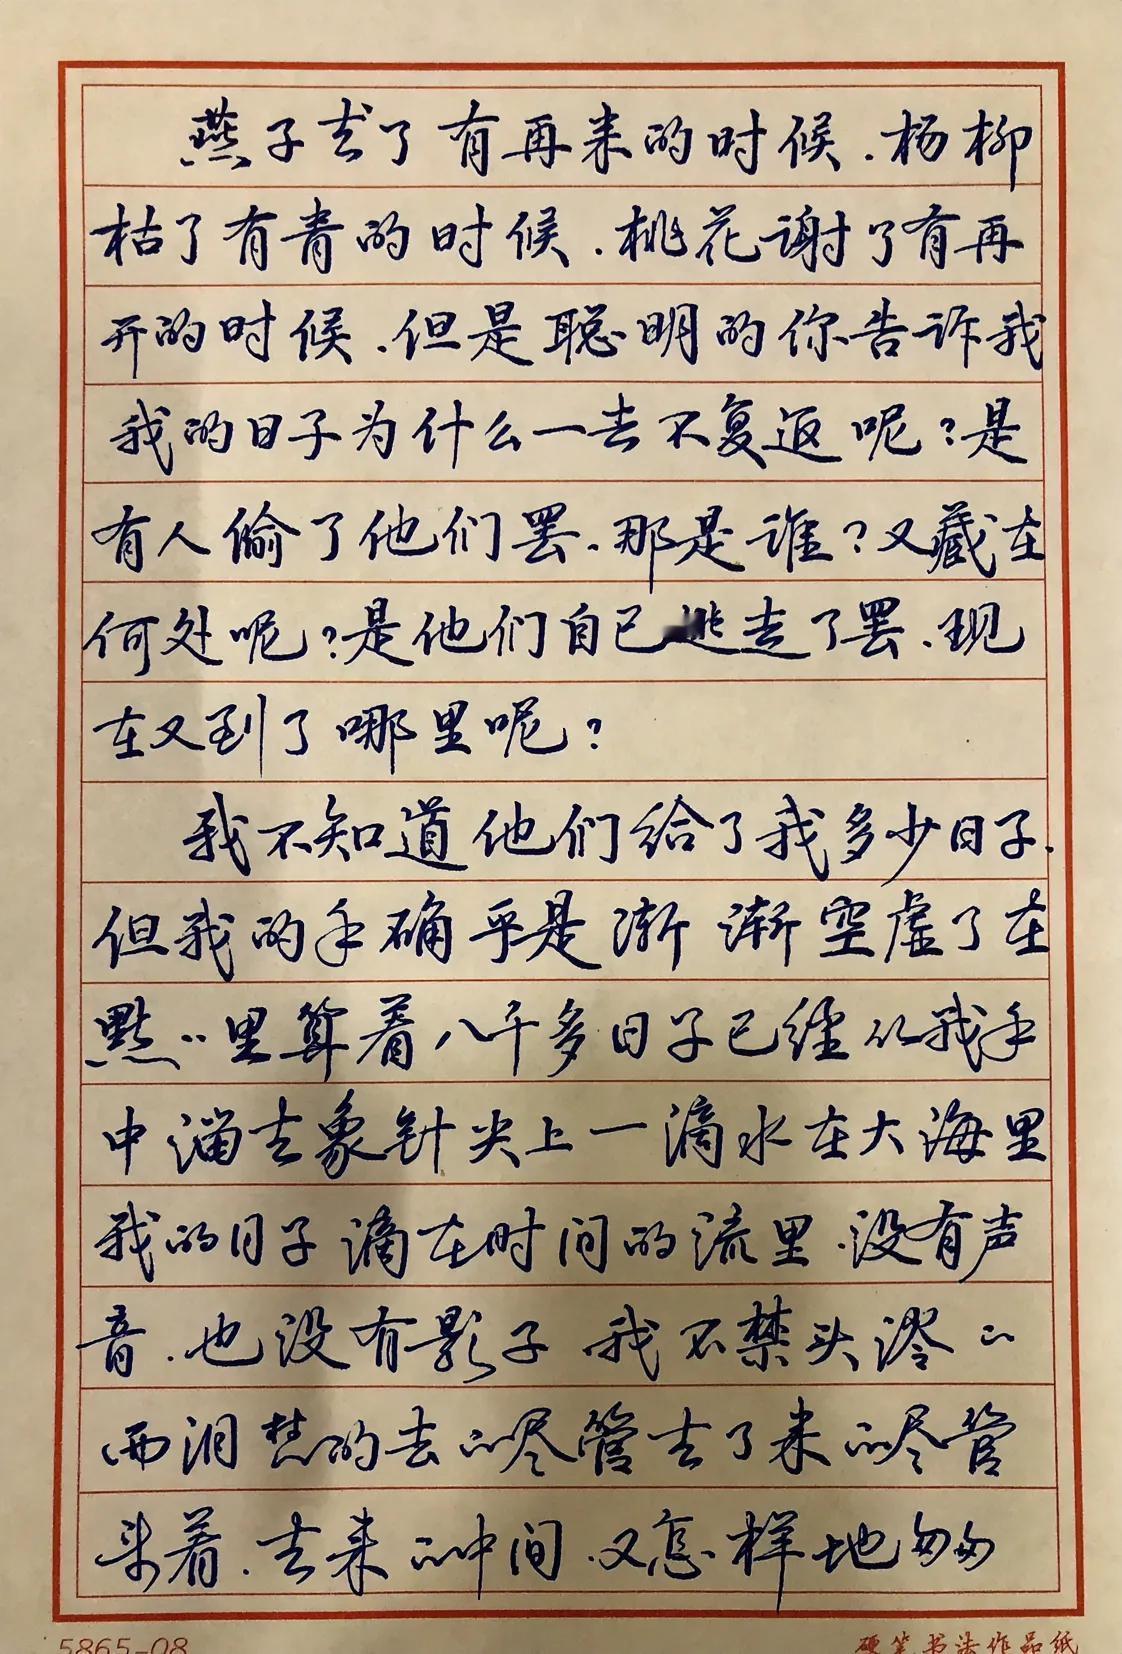 燕子去了有再来的时候.杨柳
枯了有青的时候.桃花谢了有再
开的时候.但是聪明的你告诉我
我的日子为什么一去不复返呢?是
有人偷了他们罢.那是谁?又藏在
何处呢?是他们自己逃走了罢.现
在又到了哪里呢?
我不知道他们给了我多少日子.
但我的手确乎是渐渐空虚了在
默默里算着八千多日子已经从我手
中溜去象针尖上一滴水在大海里
我的日子滴在时间的流里.没有声
音.也没有影子我不禁头涔涔
而泪潸的去的尽管去了来的尽管
来着.去来的中间.又怎样地匆匆
5865-08
硬笔书法作品纸